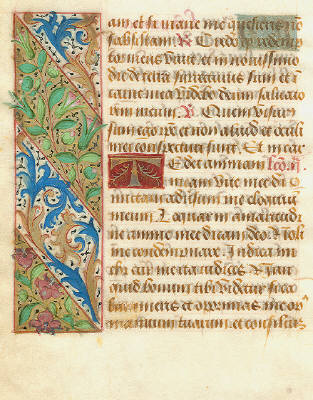 am et si mane me quesieris nō
subsistam R Credo qz redemp
tor meus viuit et in nouissimo
die de terra surrecturus sum et ī
carne mea videbo deum saluato
rem meum. V. Quem visurꝰ
sum ego ipse et non aliud et oculi
mei conspecturi sunt. Et in car
Tedet animam Lectio
meam vite mee di
mittam aduersum me eloquiū
meum Loquar in amaritudi
ne anime mee dicam deo Noli
me condempnare. Indica mi
chi cur me ita iudices. Nun
quid bonum tibi videtur si
meris et opprimas me op
manuum tuarum et consiliū